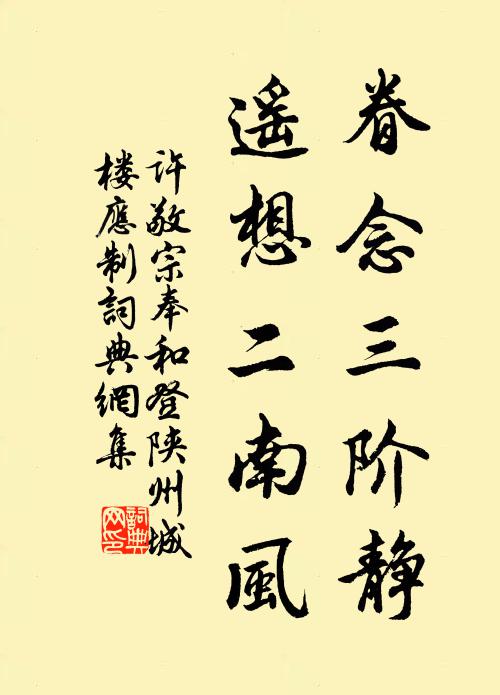 眷念三阶静
遥想二南風
许敬宗奉和登陕州城
楼應制詞典網集
詞典
网印